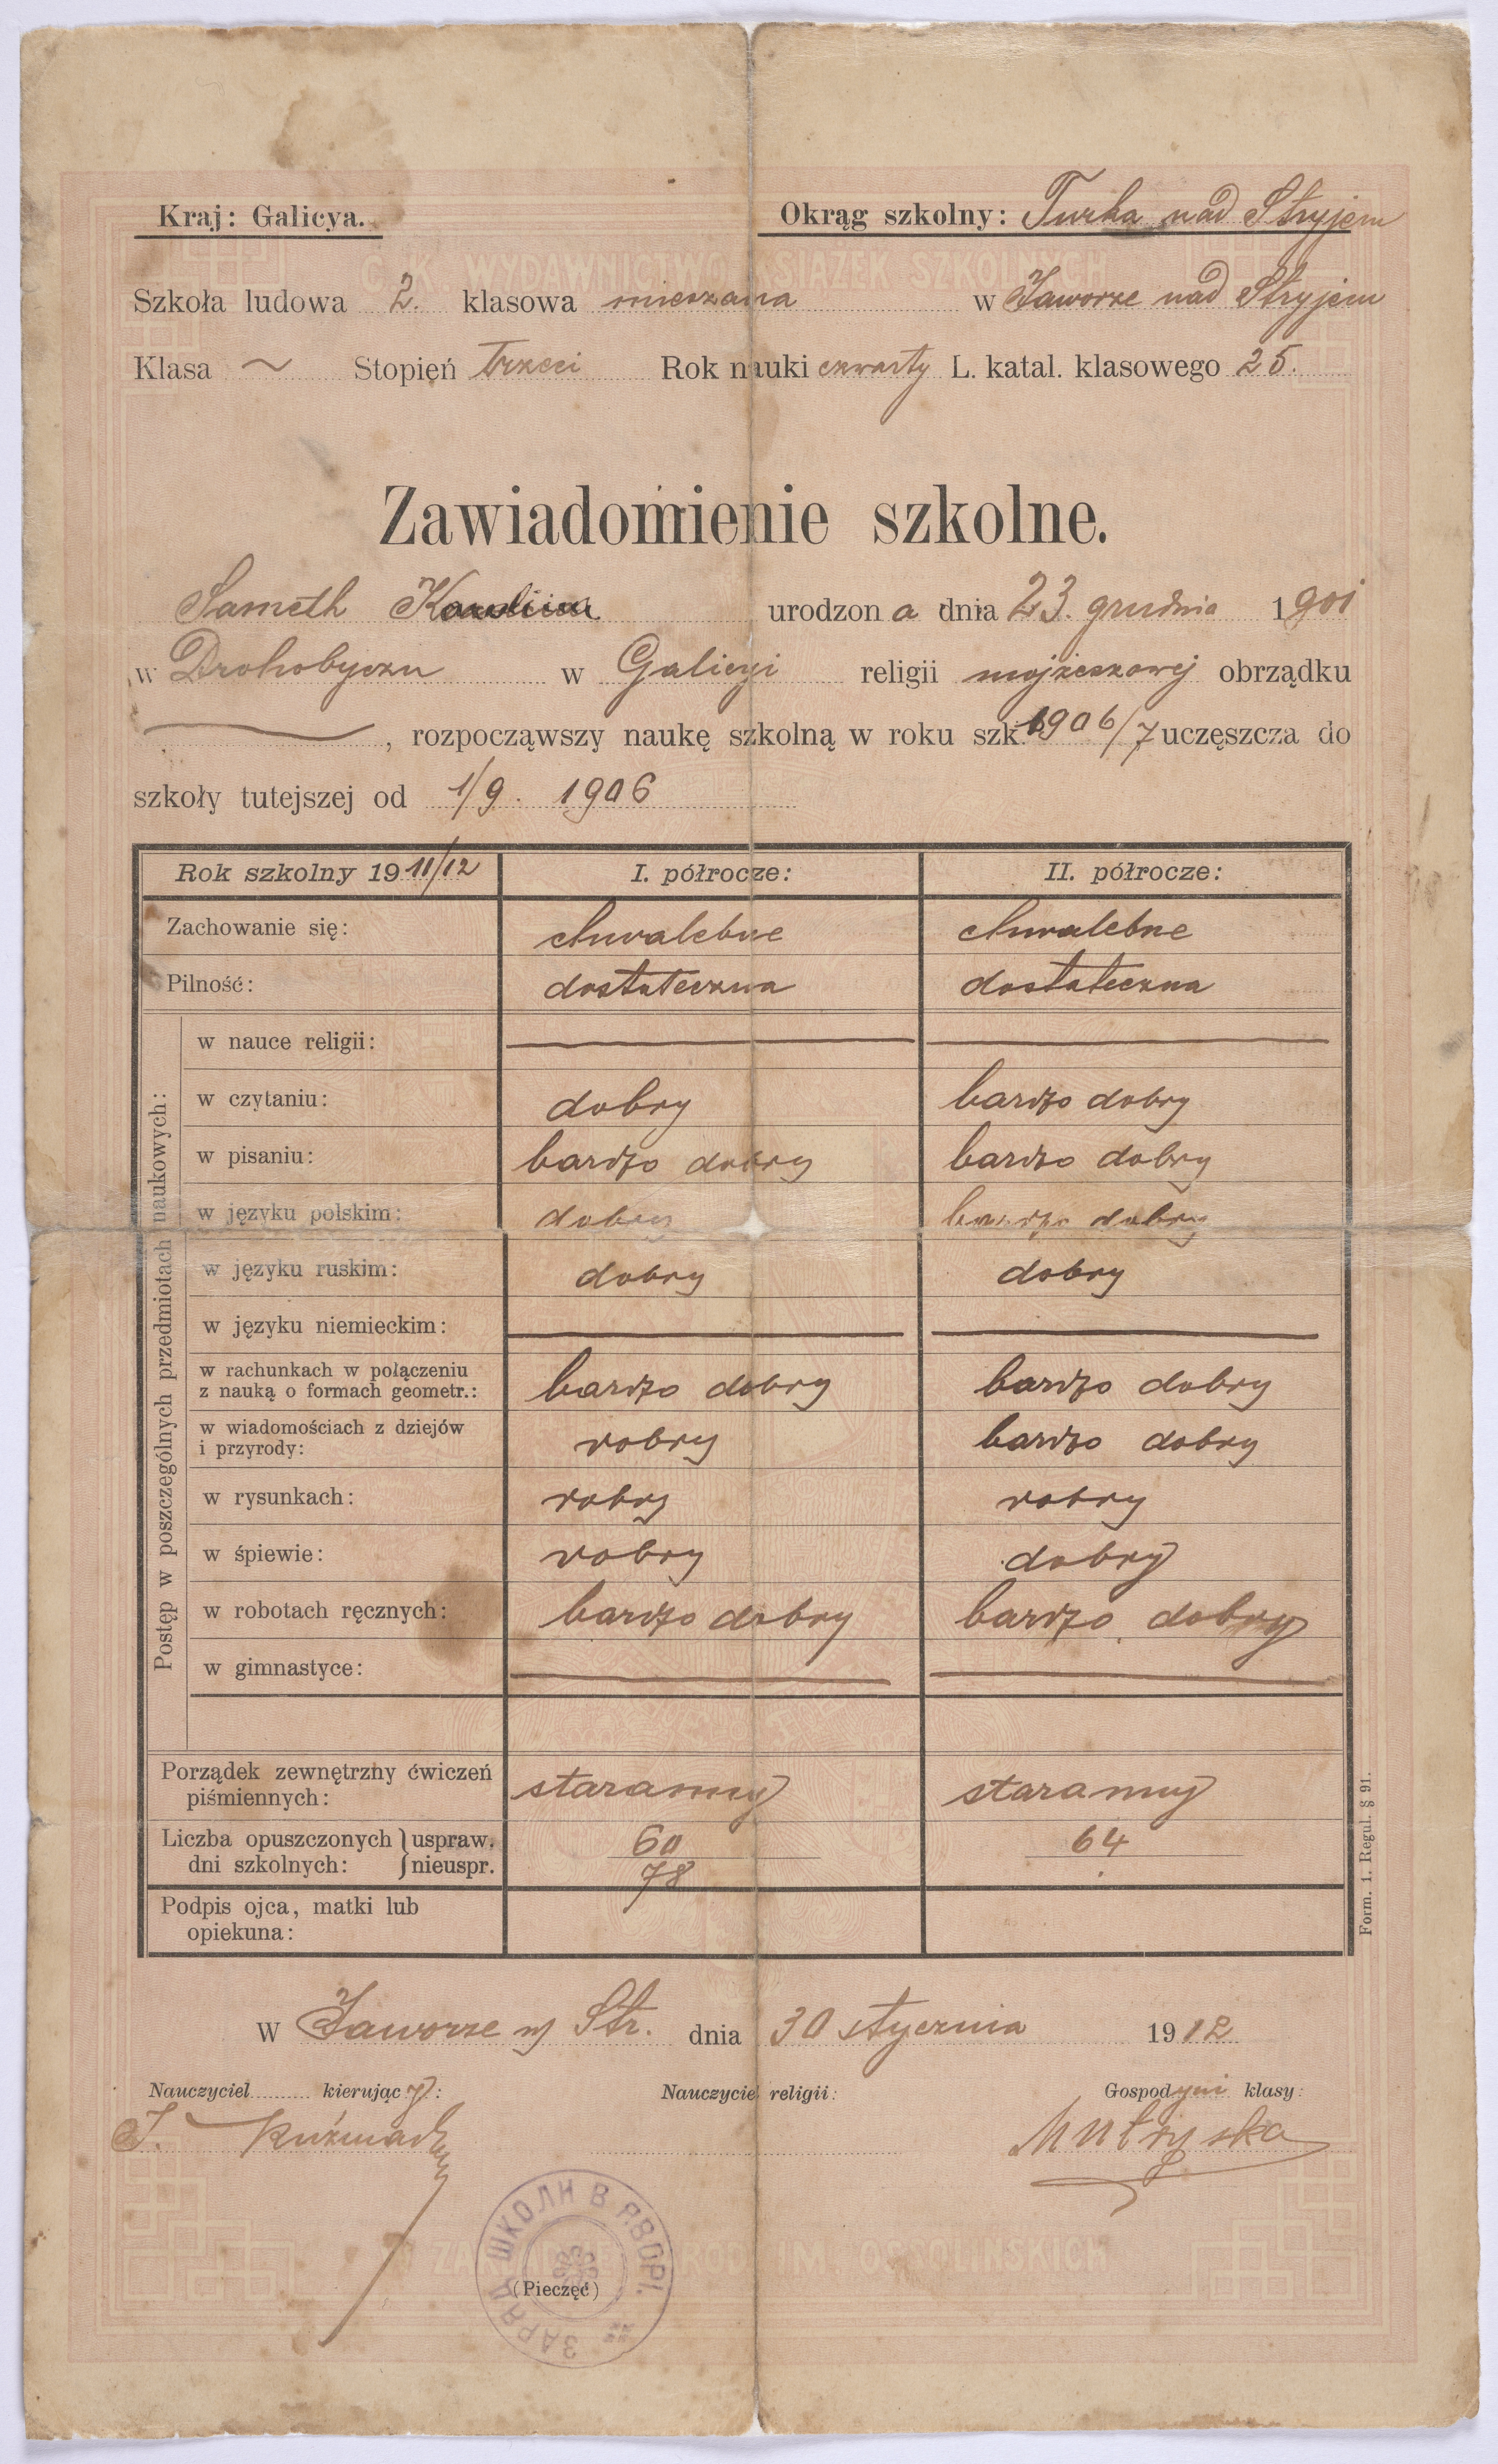 Kraj: Galicya. Okrąg szkolny: Turka nad Stryjem
C. K. WYDAWNICTWO KSIĄŻEK SZKOLNYCH
Szkoła ludowa 2. klasowa mieszana w Jaworze nad Stryjem
Klasa ~ Stopień trzeci Rok nauki czwarty L. katal. klasowego 25.
Zawiadomienie szkolne.
Sameth Karolina urodzona dnia 23. grudnia 1901
w Drohobyczu w Galicyi religii mojżeszowej obrządku
—, rozpocząwszy naukę szkolną w roku szk. 1906/7 uczęszcza do
szkoły tutejszej od 1/9. 1906
Rok szkolny 1911/12 I. półrocze: II. półrocze:
Zachowanie się: chwalebne chwalebne
Pilność: dostateczna dostateczna
Postęp w poszczególnych przedmiotach naukowych:
w nauce religii: — —
w czytaniu: dobry bardzo dobry
w pisaniu: bardzo dobry bardzo dobry
w języku polskim: dobry bardzo dobry
w języku ruskim: dobry dobry
w języku niemieckim: — —
w rachunkach w połączeniu
z nauką o formach geometr.: bardzo dobry bardzo dobry
w wiadomościach z dziejów
i przyrody: dobry bardzo dobry
w rysunkach: dobry dobry
w śpiewie: dobry dobry
w robotach ręcznych: bardzo dobry bardzo dobry
w gimnastyce: — —
Porządek zewnętrzny ćwiczeń
piśmiennych: staranny staranny
Liczba opuszczonych uspraw. 60 64
dni szkolnych: nieuspr. 78 .
Podpis ojca, matki lub
opiekuna:
Form. 1. Regul. § 91.
W Jaworze n/ Str. dnia 30 stycznia 1912
Nauczyciel kierujący: Nauczyciel religii: Gospodyni klasy:
J.
ЗАРЯД ШКОЛИ В ЯВОРІ.
ZAKŁAD NAROD. IM. OSSOLIŃSKICH
(Pieczęć)